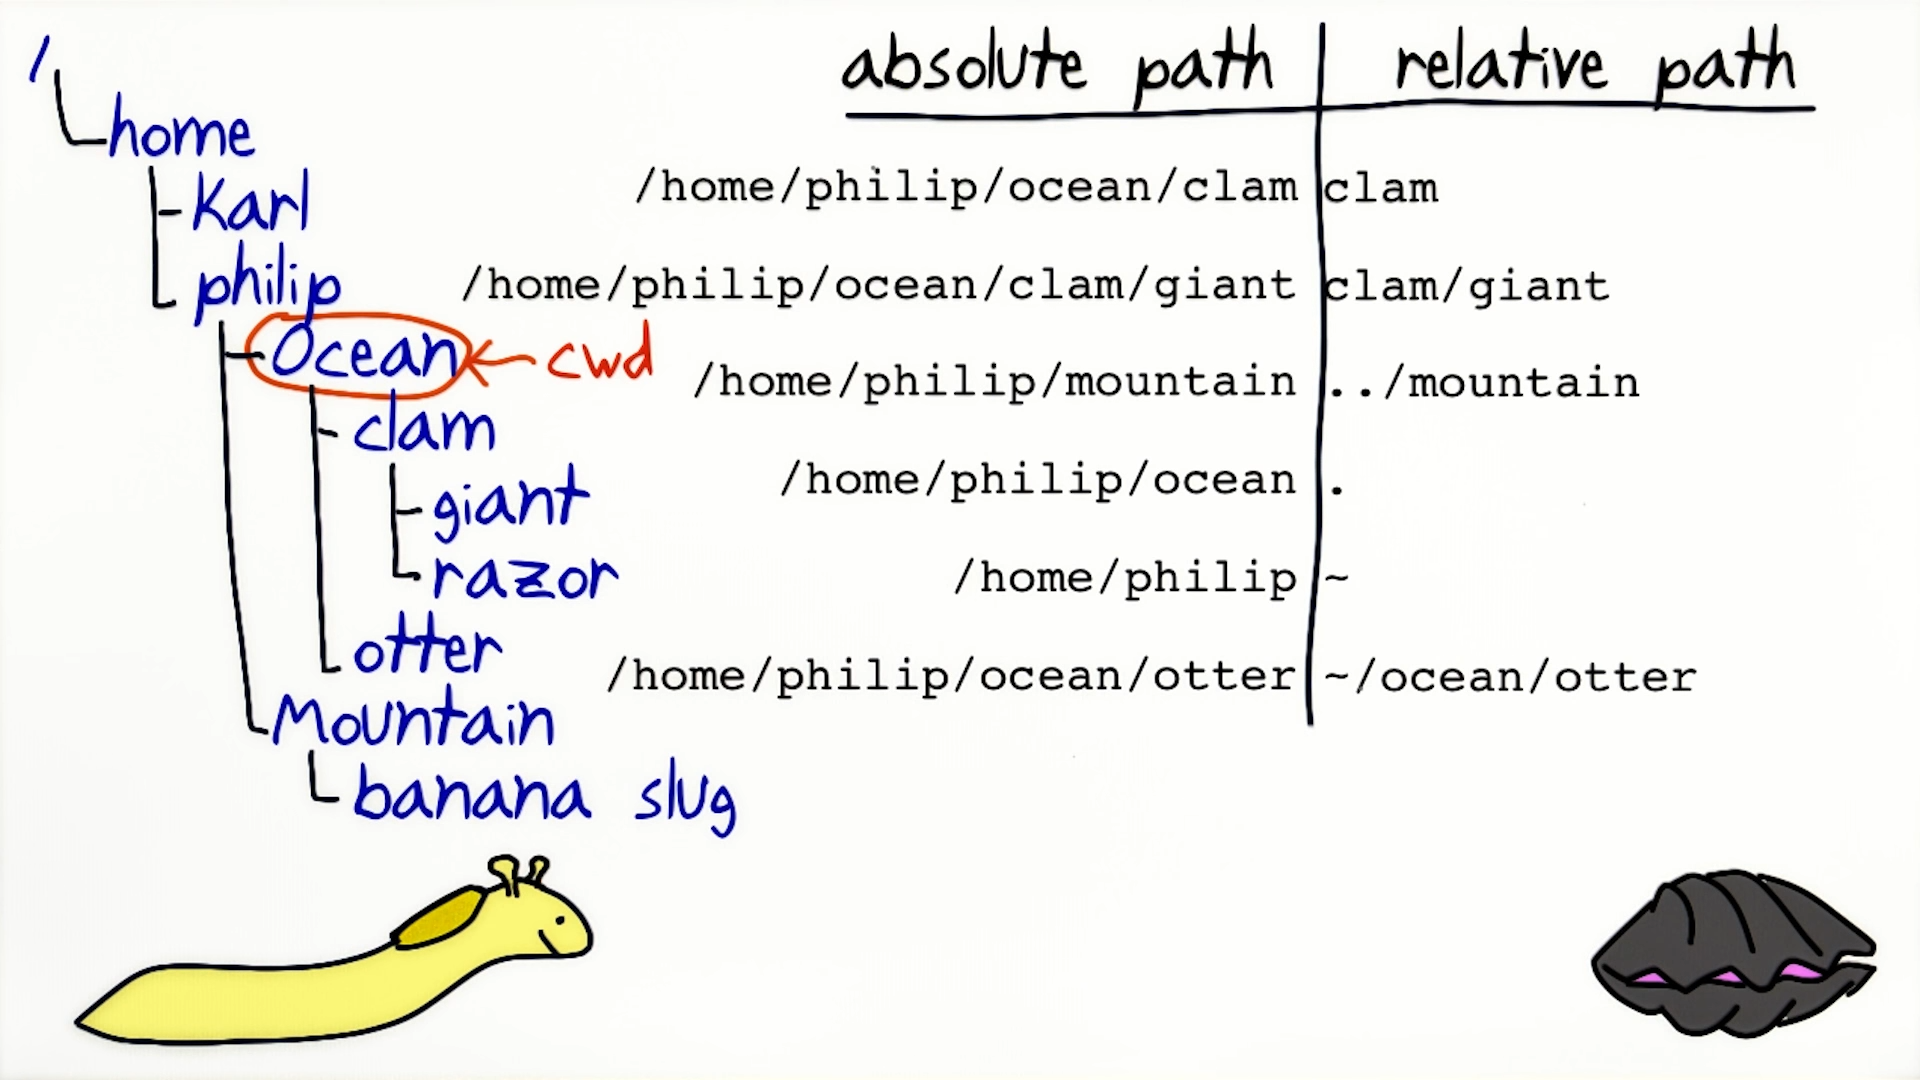 /
home
Karl
philip
Ocean ← cwd
clam
giant
razor
otter
Mountain
banana slug
absolute path relative path
/home/philip/ocean/clam clam
/home/philip/ocean/clam/giant clam/giant
/home/philip/mountain ../mountain
/home/philip/ocean .
/home/philip ~
/home/philip/ocean/otter ~/ocean/otter